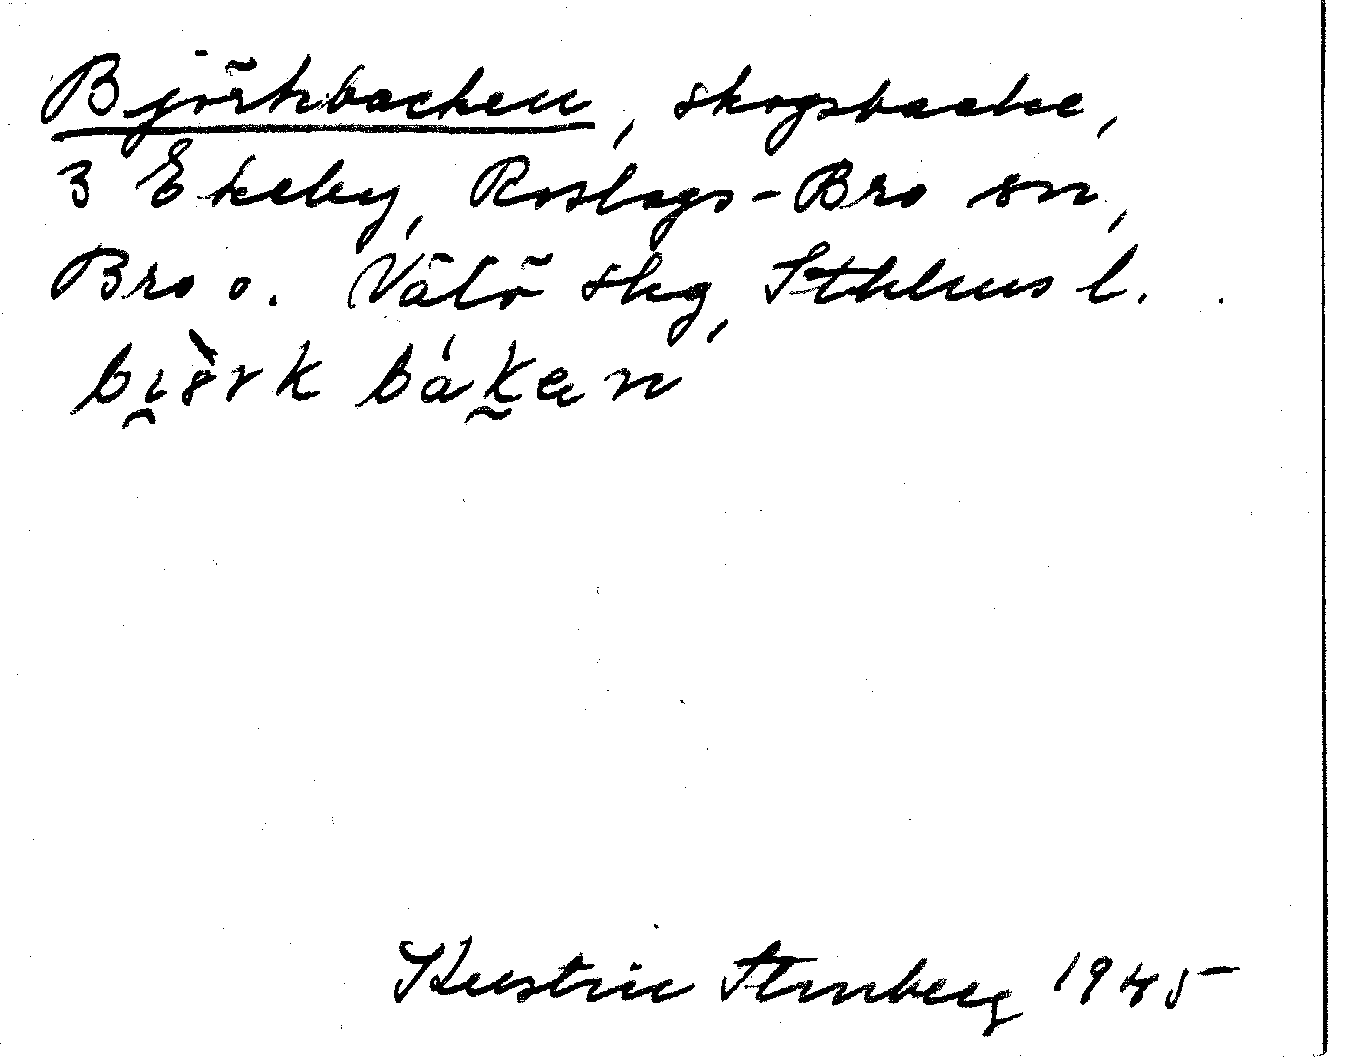 Björkbacken, skogsbacke,
3 Ekeby, Roslags-Bro sn,
Bro o. Vätö skg, Sthlms l.
bi̯ö̀rk bák̯en
Kerstin Stenberg 1945